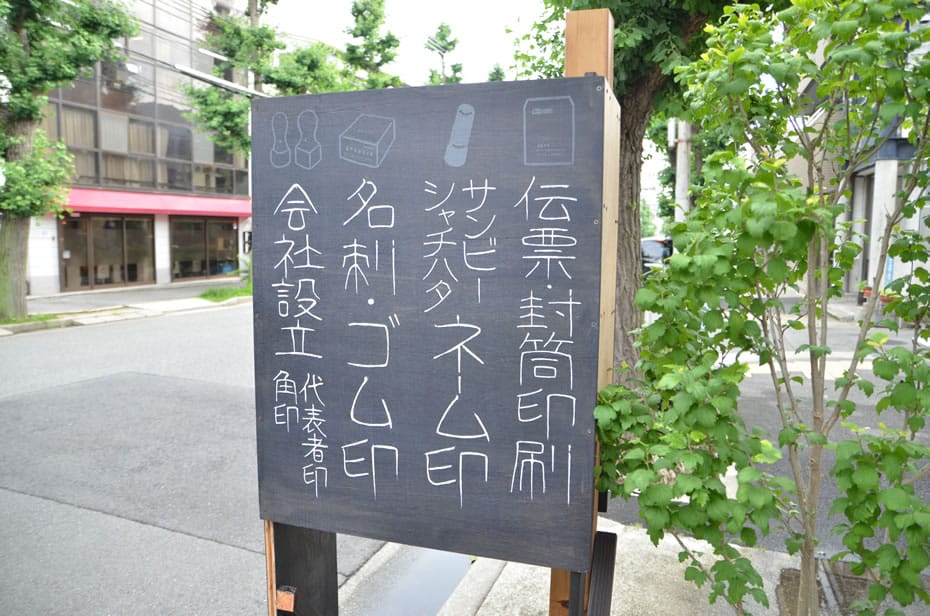 伝票・封筒印刷
サンビー
シャチハタ
ネーム印
名刺・ゴム印
会社設立
代表者印
角印